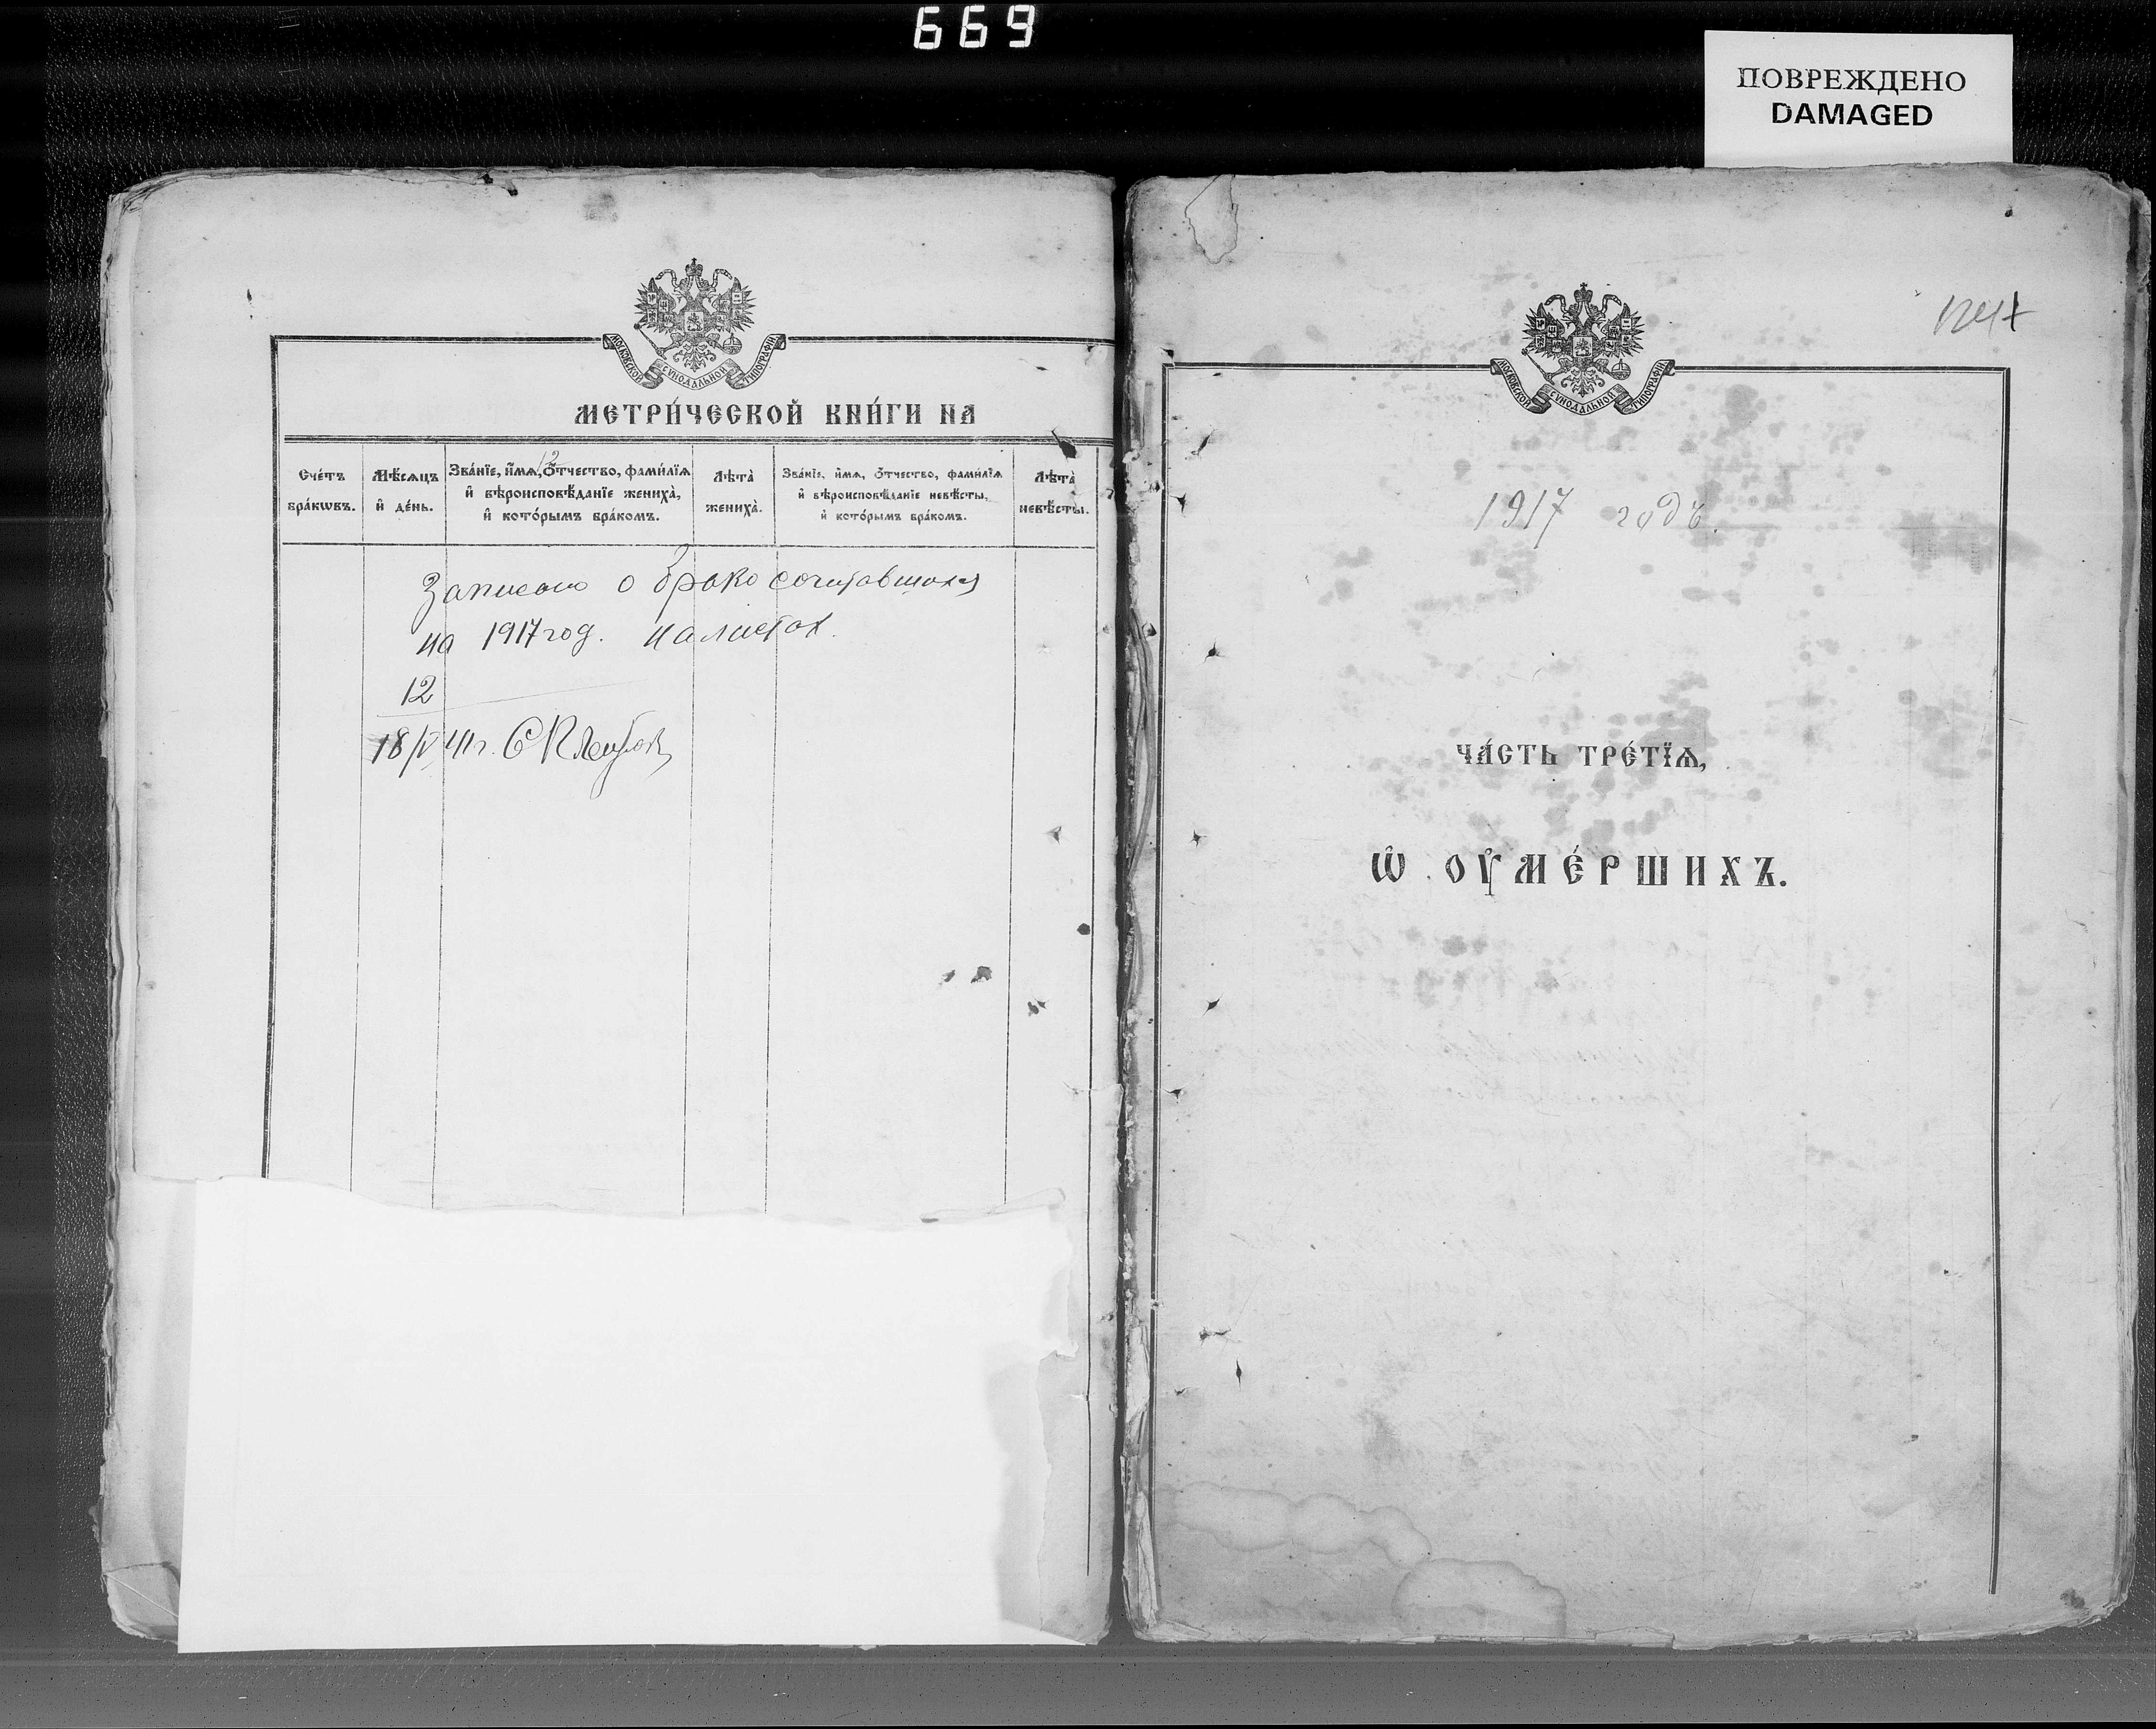 669
ПОВРЕЖДЕНО
DAMAGED
МОСКОВСКОЙ СѴНОДАЛЬНОЙ ТИПОГРАФІИ
МЕТРИ́ЧЕСКОЙ КНИ́ГИ НА
Сче́тъ бра́кѡвъ.
Мѣ́сѧцъ и҆ де́нь.
Зва́нїе, и҆́мѧ, ѻ҆́тчество, фами́лїѧ и҆ вѣроисповѣ́данїе жениха̀, и҆ кото́рымъ бра́комъ.
Лѣта̀ жениха̀.
Зва́нїе, и҆́мѧ, ѻ҆́тчество, фами́лїѧ и҆ вѣроисповѣ́данїе невѣ́сты, и҆ кото́рымъ бра́комъ.
Лѣта̀ невѣ́сты.
12
Записано о бракосочитавшихся
на 1917 год. на листах.
12
18/V 41г.
МОСКОВСКОЙ СѴНОДАЛЬНОЙ ТИПОГРАФІИ
1917 годъ.
ЧА́СТЬ ТРЕ́ТЇѦ,
Ѡ҆ ОУ҆МЕ́РШИХЪ.